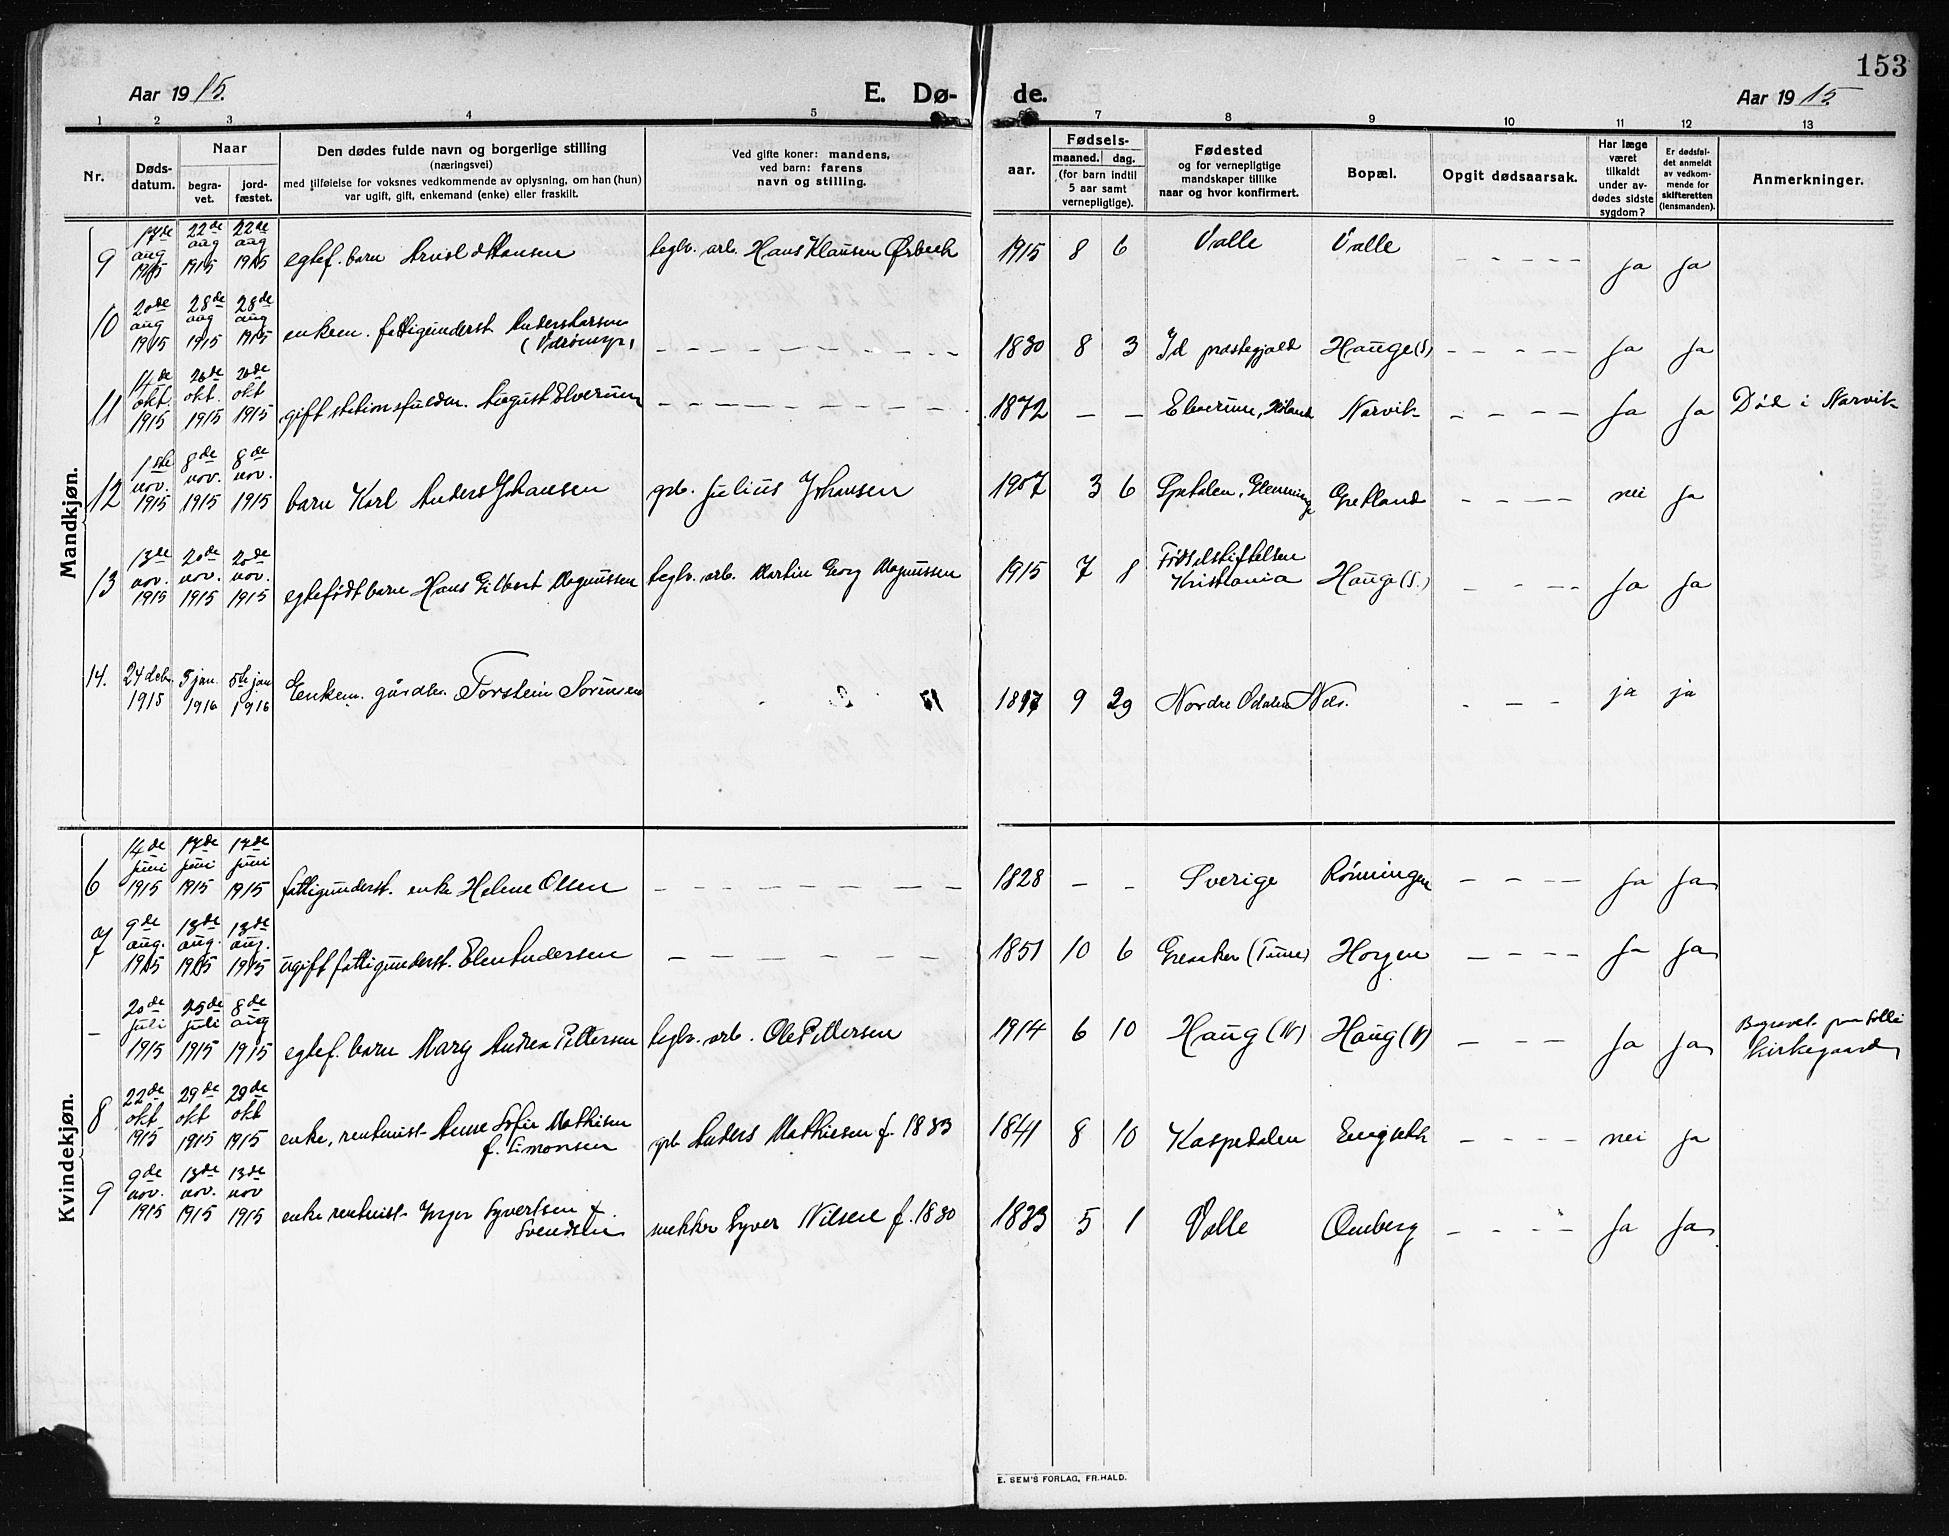 153
Aar 19 15.
E. Dø-
de.
Aar 19 15.
1 2 3 4 5 7 8 9 10 11 12 13
Nr.
Døds-
datum.
Naar
begra-
vet.
jord-
fæstet.
Den dødes fulde navn og borgerlige stilling
(næringsvei)
med tilføielse for voksnes vedkommende av oplysning, om han (hun)
var ugift, gift, enkemand (enke) eller fraskilt.
Ved gifte koner: mandens,
ved barn: farens
navn og stilling.
aar.
Fødsels-
maaned. dag.
(for barn indtil
5 aar samt
vernepligtige).
Fødested
og for vernepligtige
mandskaper tillike
naar og hvor konfirmert.
Bopæl.
Opgit dødsaarsak.
Har læge
været
tilkaldt
under av-
dødes sidste
sygdom?
Er dødsfal-
det anmeldt
av vedkom-
mende for
skifteretten
(lensmanden).
Anmerkninger.
Mandkjøn.
9 17de aug 1915 22de aug 1915 22de aug 1915 egtef. barn Arvid Hansen teglv. arb. Hans Klausen Ørbeck 1915 8 6 Valle Valle - - - - - ja ja
10 20de aug 1915 28de aug 1915 28de aug 1915 enkem. fattigunderst. Anders Larsen
- - - - - - - - 1830 8 3 Id prestegjeld Hauge (S) - - - - - ja ja
11 14de okt. 1915 20de okt. 1915 20de okt 1915 gift stationsfuldm. August Elverum - - - - - - - - 1872 - - Elverum, Høland Narvik - - - - - ja ja Død i Narvik
12 1ste nov. 1915 8de nov. 1915 8de nov. 1915 barn Karl Anders Johansen gpb. Julius Johansen 1907 3 6 Spetalen, Glemminge Gretland - - - - nei ja
13 13de nov. 1915 20de nov. 1915 20de nov. 1915 egtefødt barn Hans Gilbert Magnussen teglv. arb. Martin Georg Magnussen 1915 7 8 Fødselstiftelsen
Kristiania Hauge (S.) - - - - ja ja
14. 24 decbr. 1915 5 jan. 1916 5te jan 1916 Enkem. gårdbr. Torstein Sørensen 1817 9 29 Nordre Odalen Nes. - - - ja ja
Kvindekjøn.
6 14de juni 1915 17de juni 1915 17de juni 1915 fattigunderst. enke Helene Olsen - - - - - - - - 1828 - - Sverige Rønningen - - - - ja ja
7 9de aug. 1915 13de aug. 1915 13de aug. 1915 ugift fattigunderst. Elen Andersen - - - - - - - 1851 10 6 Greaaker (Tune) Horgen - - - - ja ja
- 20de juli 1915 25de juli 1915 8de aug 1915 egtef. barn Mary Andrea Pettersen teglv. arb. Ole Pettersen 1914 6 10 Haug (N) Haug (N) - - - - ja ja Begravet paa
kirkegaard
8 22de okt 1915 29de okt 1915 29de okt 1915 enke, rentenist Anne Sofie Mathisen
f. Simonsen gpb Anders Mathiesen f. 1833 1841 8 10 Kaspedalen Engseth - - - - nei ja
9 9de nov. 1915 13de nov. 1915 13de nov 1915 enke rentenist Inger Syvertsen f.
Svendsen snekker Syver Nilsen f. 1830 1833 5 1 Valle Omberg - - - - ja ja
E. SEM'S FORLAG, FR.HALD.